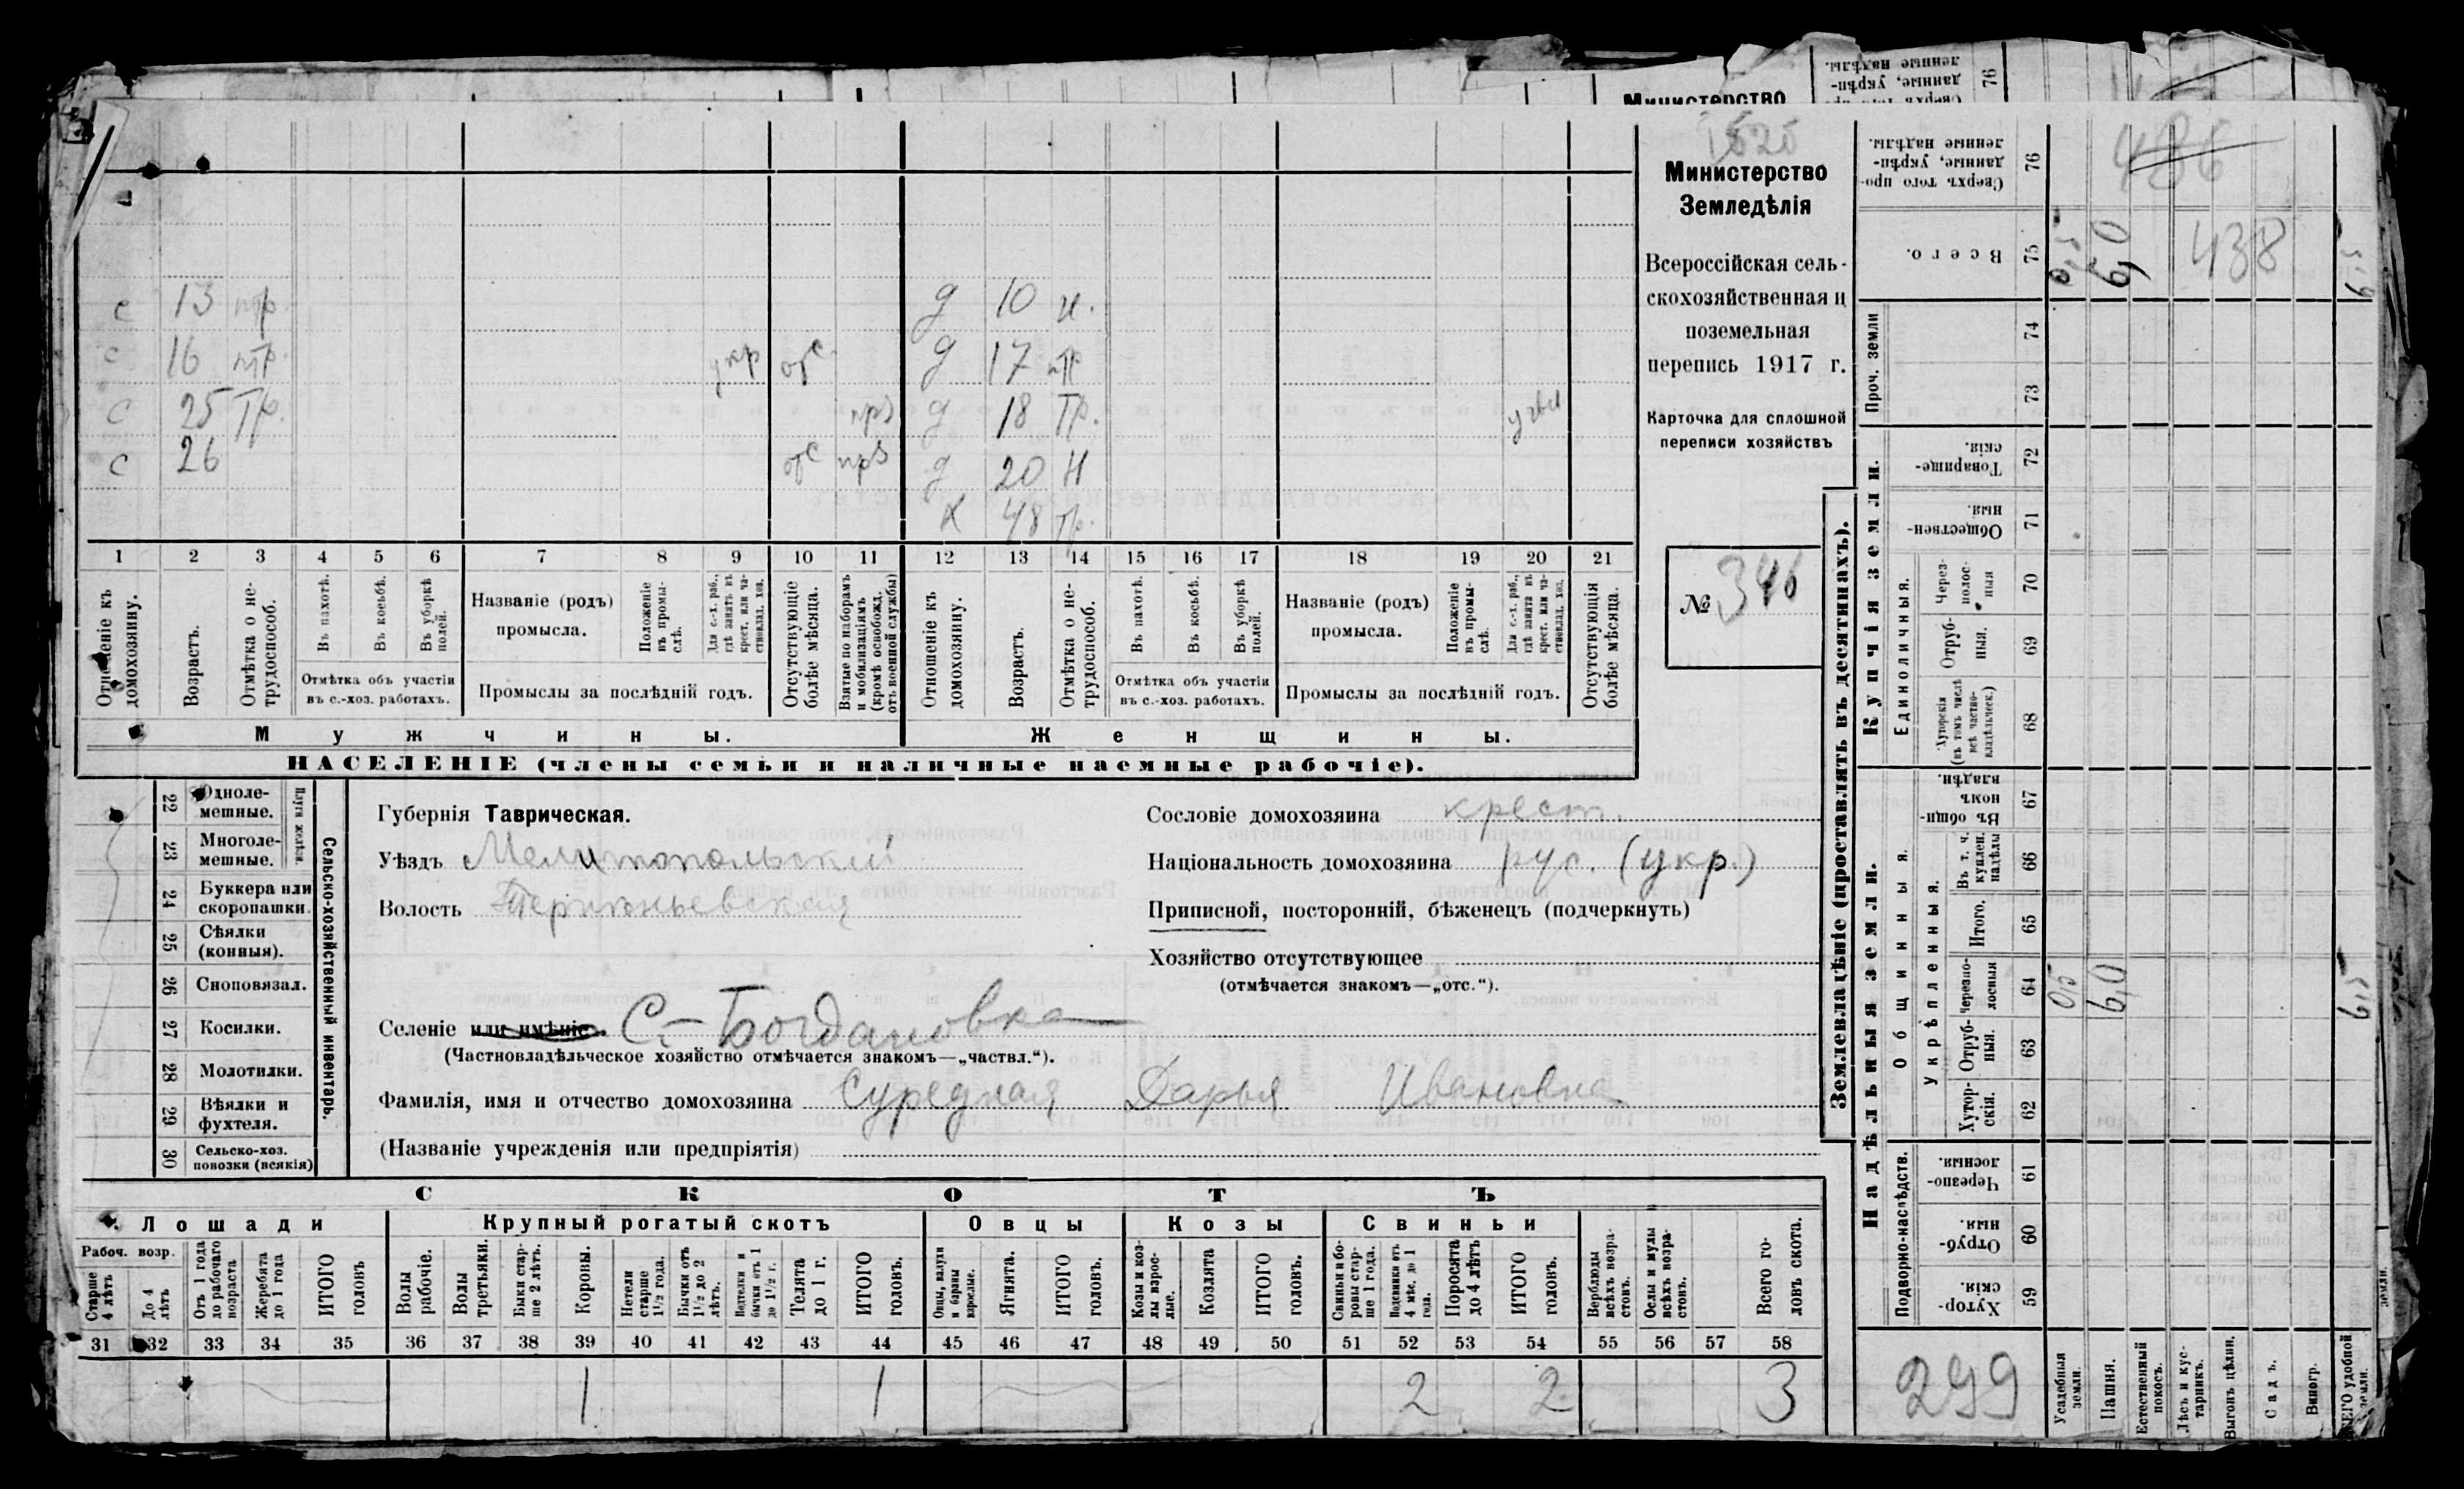 Министерство
Сверхъ того про-
данные, укрѣп-
ленные надѣлы.
76
1525
Министерство
Земледѣлія
Всероссійская сель-
скохозяйственная и
поземельная
перепись 1917 г.
Карточка для сплошной
переписи хозяйствъ
№ 346
с 13 д 10 н.
с 16 укр отс д 17
с 25 тр. прз д 18 тр.
с 26 отс прз д 20 н
х 48 тр.
1 2 3 4 5 6 7 8 9 10 11 12 13 14 15 16 17 18 19 20 21
Отношеніе къ домохозяину.
Возрастъ.
Отмѣтка о не-трудоспособ.
Въ пахотѣ.
Въ косьбѣ.
Въ уборкѣ полей.
Отмѣтка объ участіи
въ с.-хоз. работахъ.
Названіе (родъ)
промысла.
Положеніе въ промы-слѣ.
Для с.-х. раб., гдѣ занятъ въ крест. или ча-стновлад. хоз.
Промыслы за послѣдній годъ.
Отсутствующіе болѣе мѣсяца.
Взятые по наборамъ и мобилизаціямъ (кромѣ освобожд. отъ военной службы)
Отношеніе къ домохозяину.
Возрастъ.
Отмѣтка о не-трудоспособ.
Въ пахотѣ.
Въ косьбѣ.
Въ уборкѣ полей.
Отмѣтка объ участіи
въ с.-хоз. работахъ.
Названіе (родъ)
промысла.
Положеніе въ промы-слѣ.
Для с.-х. раб., гдѣ занята въ крест. или ча-стновлад. хоз.
Промыслы за послѣдній годъ.
Отсутствующія болѣе мѣсяца.
Мужчины. Женщины.
НАСЕЛЕНІЕ (члены семьи и наличные наемные рабочіе).
Сельско-хозяйственный инвентарь.
22 Одноле-
мешные.
23 Многоле-
мешные.
24 Буккера или
скоропашки.
25 Сѣялки
(конныя).
26 Сноповязал.
27 Косилки.
28 Молотилки.
29 Вѣялки и
фухтеля.
30 Сельско-хоз.
повозки (всякія)
Губернія Таврическая.
Уѣздъ Мелитопольскій
Волость
Селеніе или имѣніе С.-Богдановка
(Частновладѣльческое хозяйство отмѣчается знакомъ—„частвл.“).
Фамилія, имя и отчество домохозяина Суредная Дарья Ивановна
(Названіе учрежденія или предпріятія)
Сословіе домохозяина крест.
Національность домохозяина рус. (укр.)
Приписной, посторонній, бѣженецъ (подчеркнуть)
Хозяйство отсутствующее
(отмѣчается знакомъ—„отс.“).
СКОТЪ
Лошади Крупный рогатый скотъ Овцы Козы Свиньи
Рабоч. возр.
Старше 4 лѣтъ
До 4 лѣтъ
Отъ 1 года до рабочаго возраста
Жеребята до 1 года
ИТОГО головъ
Волы рабочіе.
Волы третьяки.
Быки стар-ше 2 лѣтъ.
Коровы.
Нетели старше 1½ года.
Бычки отъ 1½ до 2 лѣтъ.
Телята до 1 г.
ИТОГО головъ.
Ягнята.
ИТОГО головъ.
Козы и коз-лы взрос-лые.
Козлята
ИТОГО головъ.
Свиньи и бо-ровы стар-ше 1 года.
Поросята до 4 лѣтъ
ИТОГО головъ.
Верблюды всѣхъ возра-стовъ.
Ослы и мулы всѣхъ возра-стовъ.
Всего го-ловъ скота.
31 32 33 34 35 36 37 38 39 40 41 42 43 44 45 46 47 48 49 50 51 52 53 54 55 56 57 58
1 1 2 2 3
Землевладѣніе (проставлять въ десятинахъ).
Сверхъ того про-
данные, укрѣп-
ленные надѣлы.
76
486
Всего. 75
438
Проч. земли
74
73
Купчія земли.
Товарище-
скія. 72
Обществен-
ныя. 71
Единоличныя.
Через-
полос-
ныя 70
Отруб-
ныя. 69
Хуторскія
(въ томъ числѣ
всѣ частно-
владѣльческ.) 68
Надѣльныя земли.
Общинныя.
Въ общин-
номъ
владѣн. 67
Укрѣпленныя.
Въ т. ч.
куплен.
надѣлы 66
Итого. 65
Черезпо-
лосныя 64
0,5
6,0
Отруб-
ныя. 63
Хутор-
скія. 62
Подворно-наслѣдств.
Черезпо-
лосныя. 61
Отруб-
ныя. 60
Хутор-
скія. 59
299
Усадебныя земли.
Пашня.
Естественный покосъ.
Лѣсъ и кус-тарникъ.
Выгонъ цѣлин.
Садъ.
Виногр.